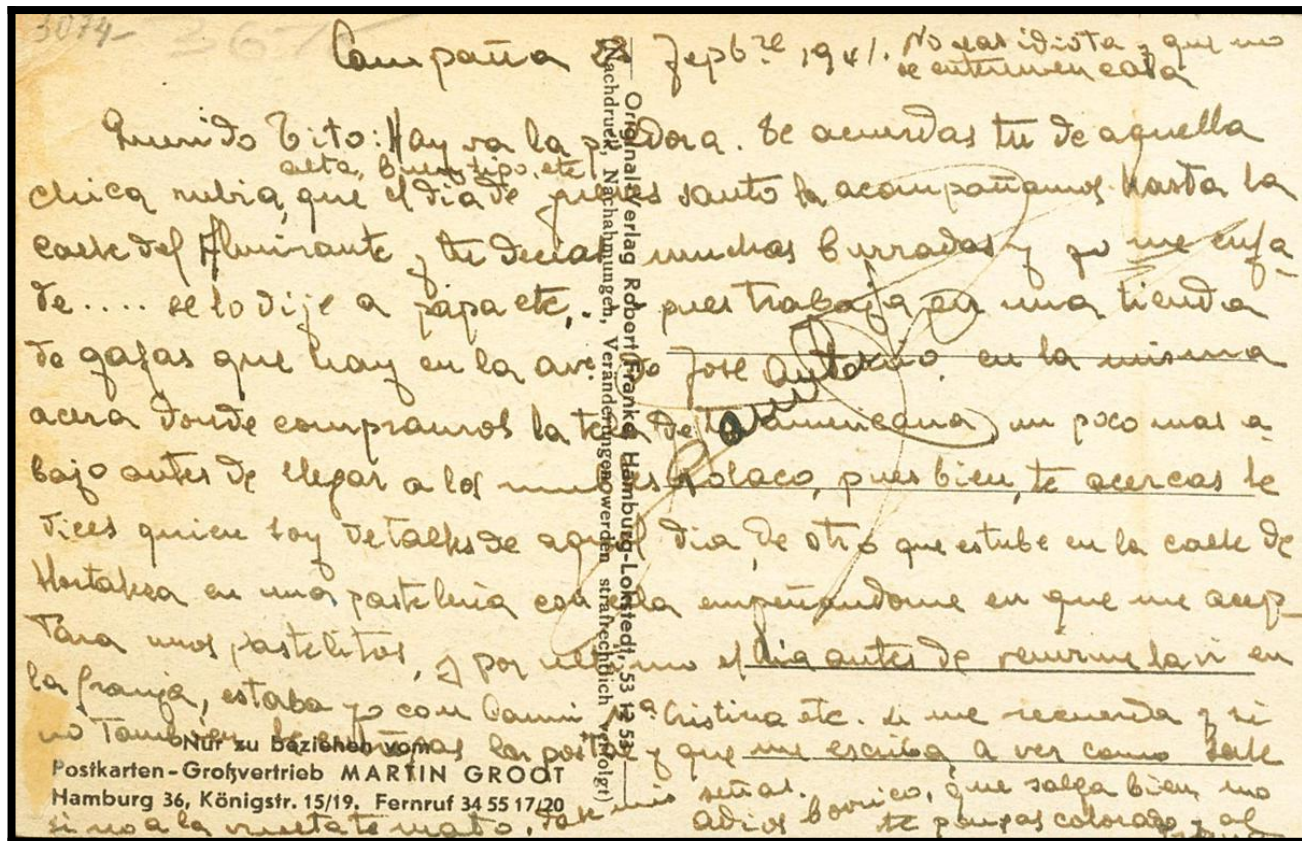 3074-
367
Campaña 28 Sepbre 1941. No seas idiota y que no
se enteren en casa
Querido Tito: Hay va la p dora. Te acuerdas tu de aquella
alta, buen tipo, etc
chica rubia, que el dia de jueves santo la acompañamos hasta la
calle del Almirante y tu decias muchas burradas y yo me enfa-
de..... se lo dije a papa etc,. pues trabaja en una tienda
de gafas que hay en la ave. de Jose Antonio. en la misma
acera donde compramos la tela de la americana, un poco mas a-
bajo antes de llegar a los muebles Rolaco, pues bien, te acercas le
dices quien soy detalles de aquel dia, de otro que estube en la calle de
Hortaleza en una pasteleria con ella empeñandome en que me acep-
tara unos pastelitos, y por ultimo el dia antes de venirme la vi en
la Granja, estaba yo con Mª Cristina etc. si me recuerda y si
no tambien le enseñas la postal y que me escriba, a ver como sale
mis señas.
adios borrico, que salga bien, no
si no a la vuelta te mato, te pongas colorado y al
Original-Verlag Robert Franke, Hamburg-Lokstedt, 53 12 53
(Nachdruck, Nachahmungen, Veränderungen werden strafrechtlich verfolgt)
Nur zu beziehen vom
Postkarten-Großvertrieb MARTIN GROOT
Hamburg 36, Königstr. 15/19. Fernruf 34 55 17/20